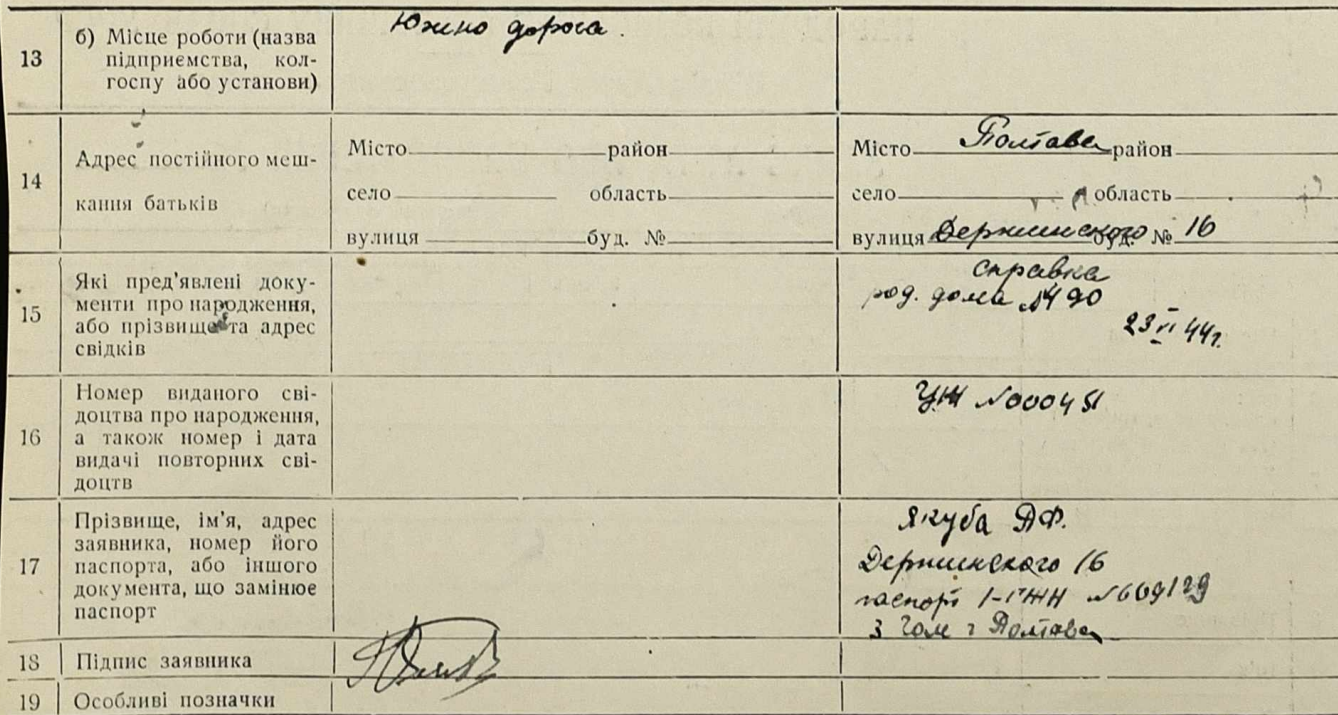 13 б) Місце роботи (назва
підприємства, кол-
госпу або установи)
Южно дорога.
14 Адрес постійного меш-
кання батьків
Місто район
село область
вулиця буд. №
Місто Полтава район
село область
вулиця Держинского буд. № 16
15 Які пред'явлені доку-
менти про народження,
або прізвище та адрес
свідків
справка
род. дома №490
23 VI 44г.
16 Номер виданого сві-
доцтва про народження,
а також номер і дата
видачі повторних сві-
доцтв
УЖ №000451
17 Прізвище, ім'я, адрес
заявника, номер його
паспорта, або іншого
документа, що замінює
паспорт
Якуба
Держинского 16
паспорт №609129
3 г Полтава
18 Підпис заявника
19 Особливі позначки